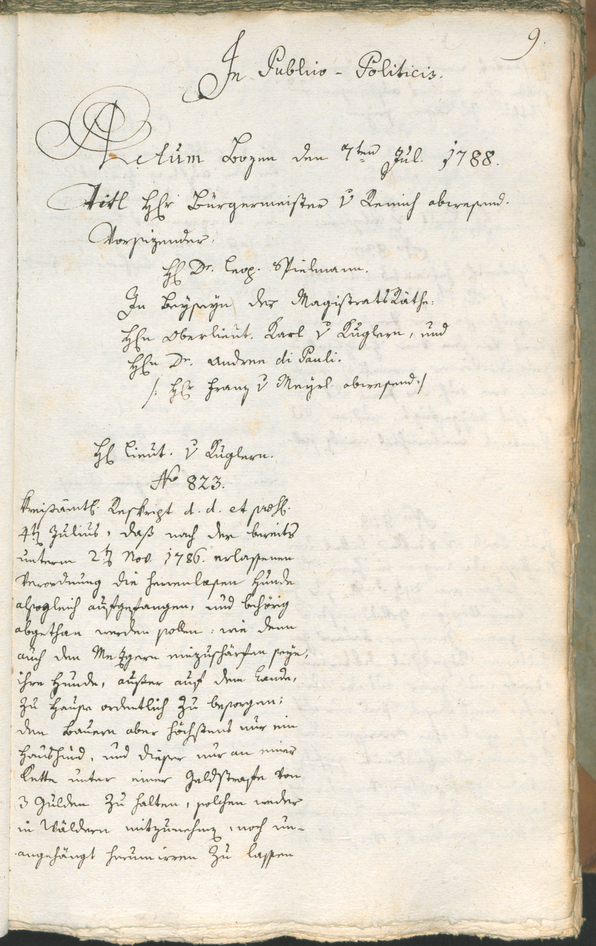 9.
In Publico-Politicis.
Actum Bozen den 7ten Jul. 1788.
Titl HHr Bürgermeister v Remich abwesend.
Vorsizender,
HH Dr. Leop. Spielmann.
In Beyseyn der MagistratsRäthe.
HHn Oberlieut. Karl v Kuglern, und
HHn Dr. Andree di Pauli.
/: HH Franz v Mayrl abwesend :/
HH Lieut. v Kuglern.
No 823.
Kreisämtl. Reskript d. d. et praes.
4ten Julius, daß nach der bereits
unterm 2ten Nov. 1786. erlassenen
Verordnung die herrenlosen Hunde
alsogleich aufgefangen, und behörig
abgethan werden sollen: wie denn
auch den Metzgern einzuschärfen seye,
ihre Hunde, ausser auf dem Lande,
zu Hause ordentlich zu besorgen;
dem Bauern aber höchstens nur ein
Haushund, und dieser nur an einer
Kette unter einer Geldstrafe von
3 Gulden zu halten, solchen weder
in Wäldern mitzunehmen, noch un-
angehängt herumirren zu lassen